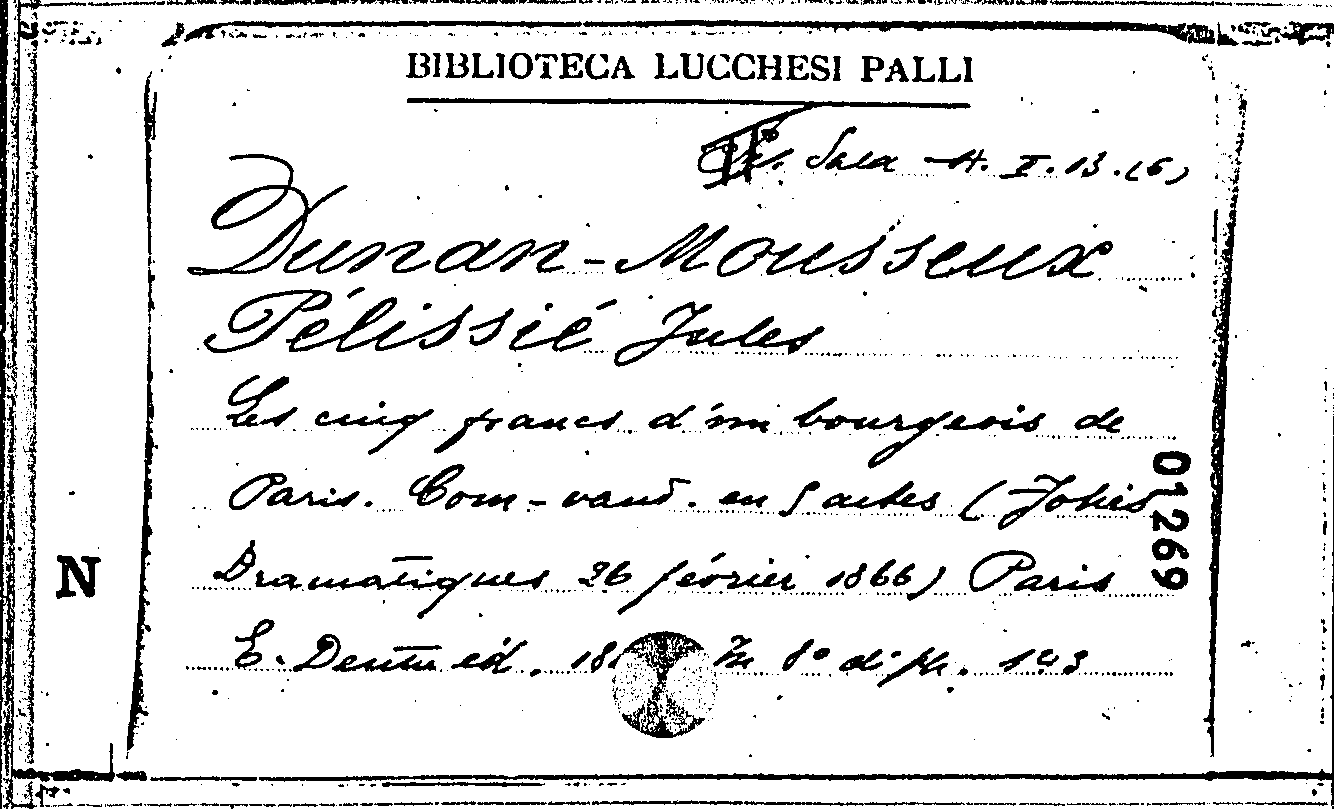 BIBLIOTECA LUCCHESI PALLI
Sala A. II. 13. (6)
Dunan-Mousseux
Pélissié Jules
Les cinq francs d'un bourgeois de
Paris. Com-vaud. en 5 actes (Folies
Dramatiques 26 février 1866) Paris
E. Dentu éd. In 8° di pp. 123
01269
N